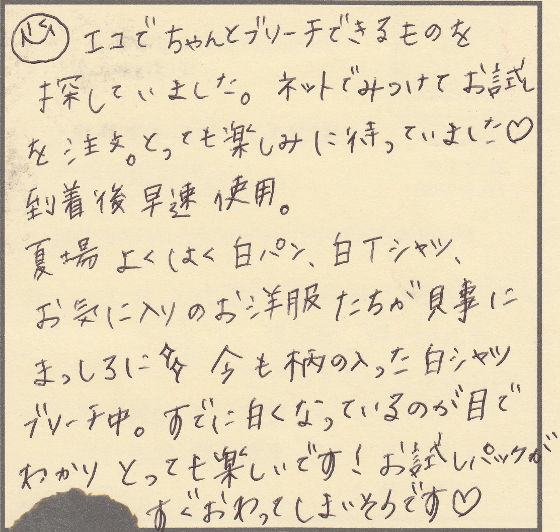 エコでちゃんとブリーチできるものを
探していました。ネットでみつけてお試し
を注文。とっても楽しみに待っていました♡
到着後早速使用。
夏場よくはく白パン、白Tシャツ、
お気に入りのお洋服たちが見事に
まっしろに 今も柄の入った白シャツ
ブリーチ中。すでに白くなっているのが目で
わかりとっても楽しいです!お試しパックが
すぐおわってしまいそうです♡